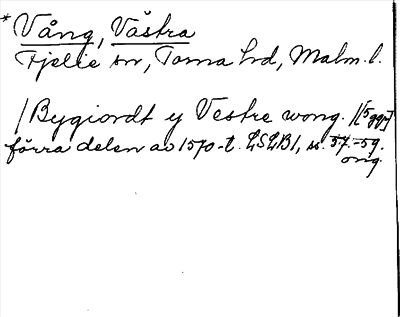 * Vång, Västra
Fjelie sn, Torna hd, Malm. l.
/Bygiordt y Vestre wong./[5 ggr]
förra delen av 1570-t. LSLB1, ss. 57-59.
orig.